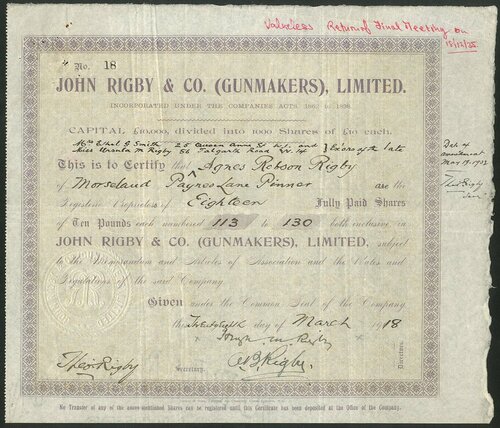 Valueless Return of Final Meeting on
15/12/25
No. 18
JOHN RIGBY & CO. (GUNMAKERS), LIMITED.
INCORPORATED UNDER THE COMPANIES ACTS, 1862 to 1898.
CAPITAL £10,000, divided into 1000 Shares of £10 each.
Mrs Ethel G Smith 25 Queen Anne St and Exors of the late
Miss Ursula M Rigby 56 Talgarth Road W.14
This is to Certify that Agnes Robson Rigby
of Morseland Paynes Lane Pinner are the
Registered Proprietors of Eighteen Fully Paid Shares
of Ten Pounds each numbered 113 to 130 both inclusive in
JOHN RIGBY & CO. (GUNMAKERS), LIMITED, subject
to the Memorandum and Articles of Association and the Rules and
Regulations of the said Company.
Given under the Common Seal of the Company
the Twentyeight day of March 1918
Theo Rigby
Secretary.
Directors.
No Transfer of any of the above-mentioned Shares can be registered until this Certificate has been deposited at the Office of the Company.
Theo Rigby